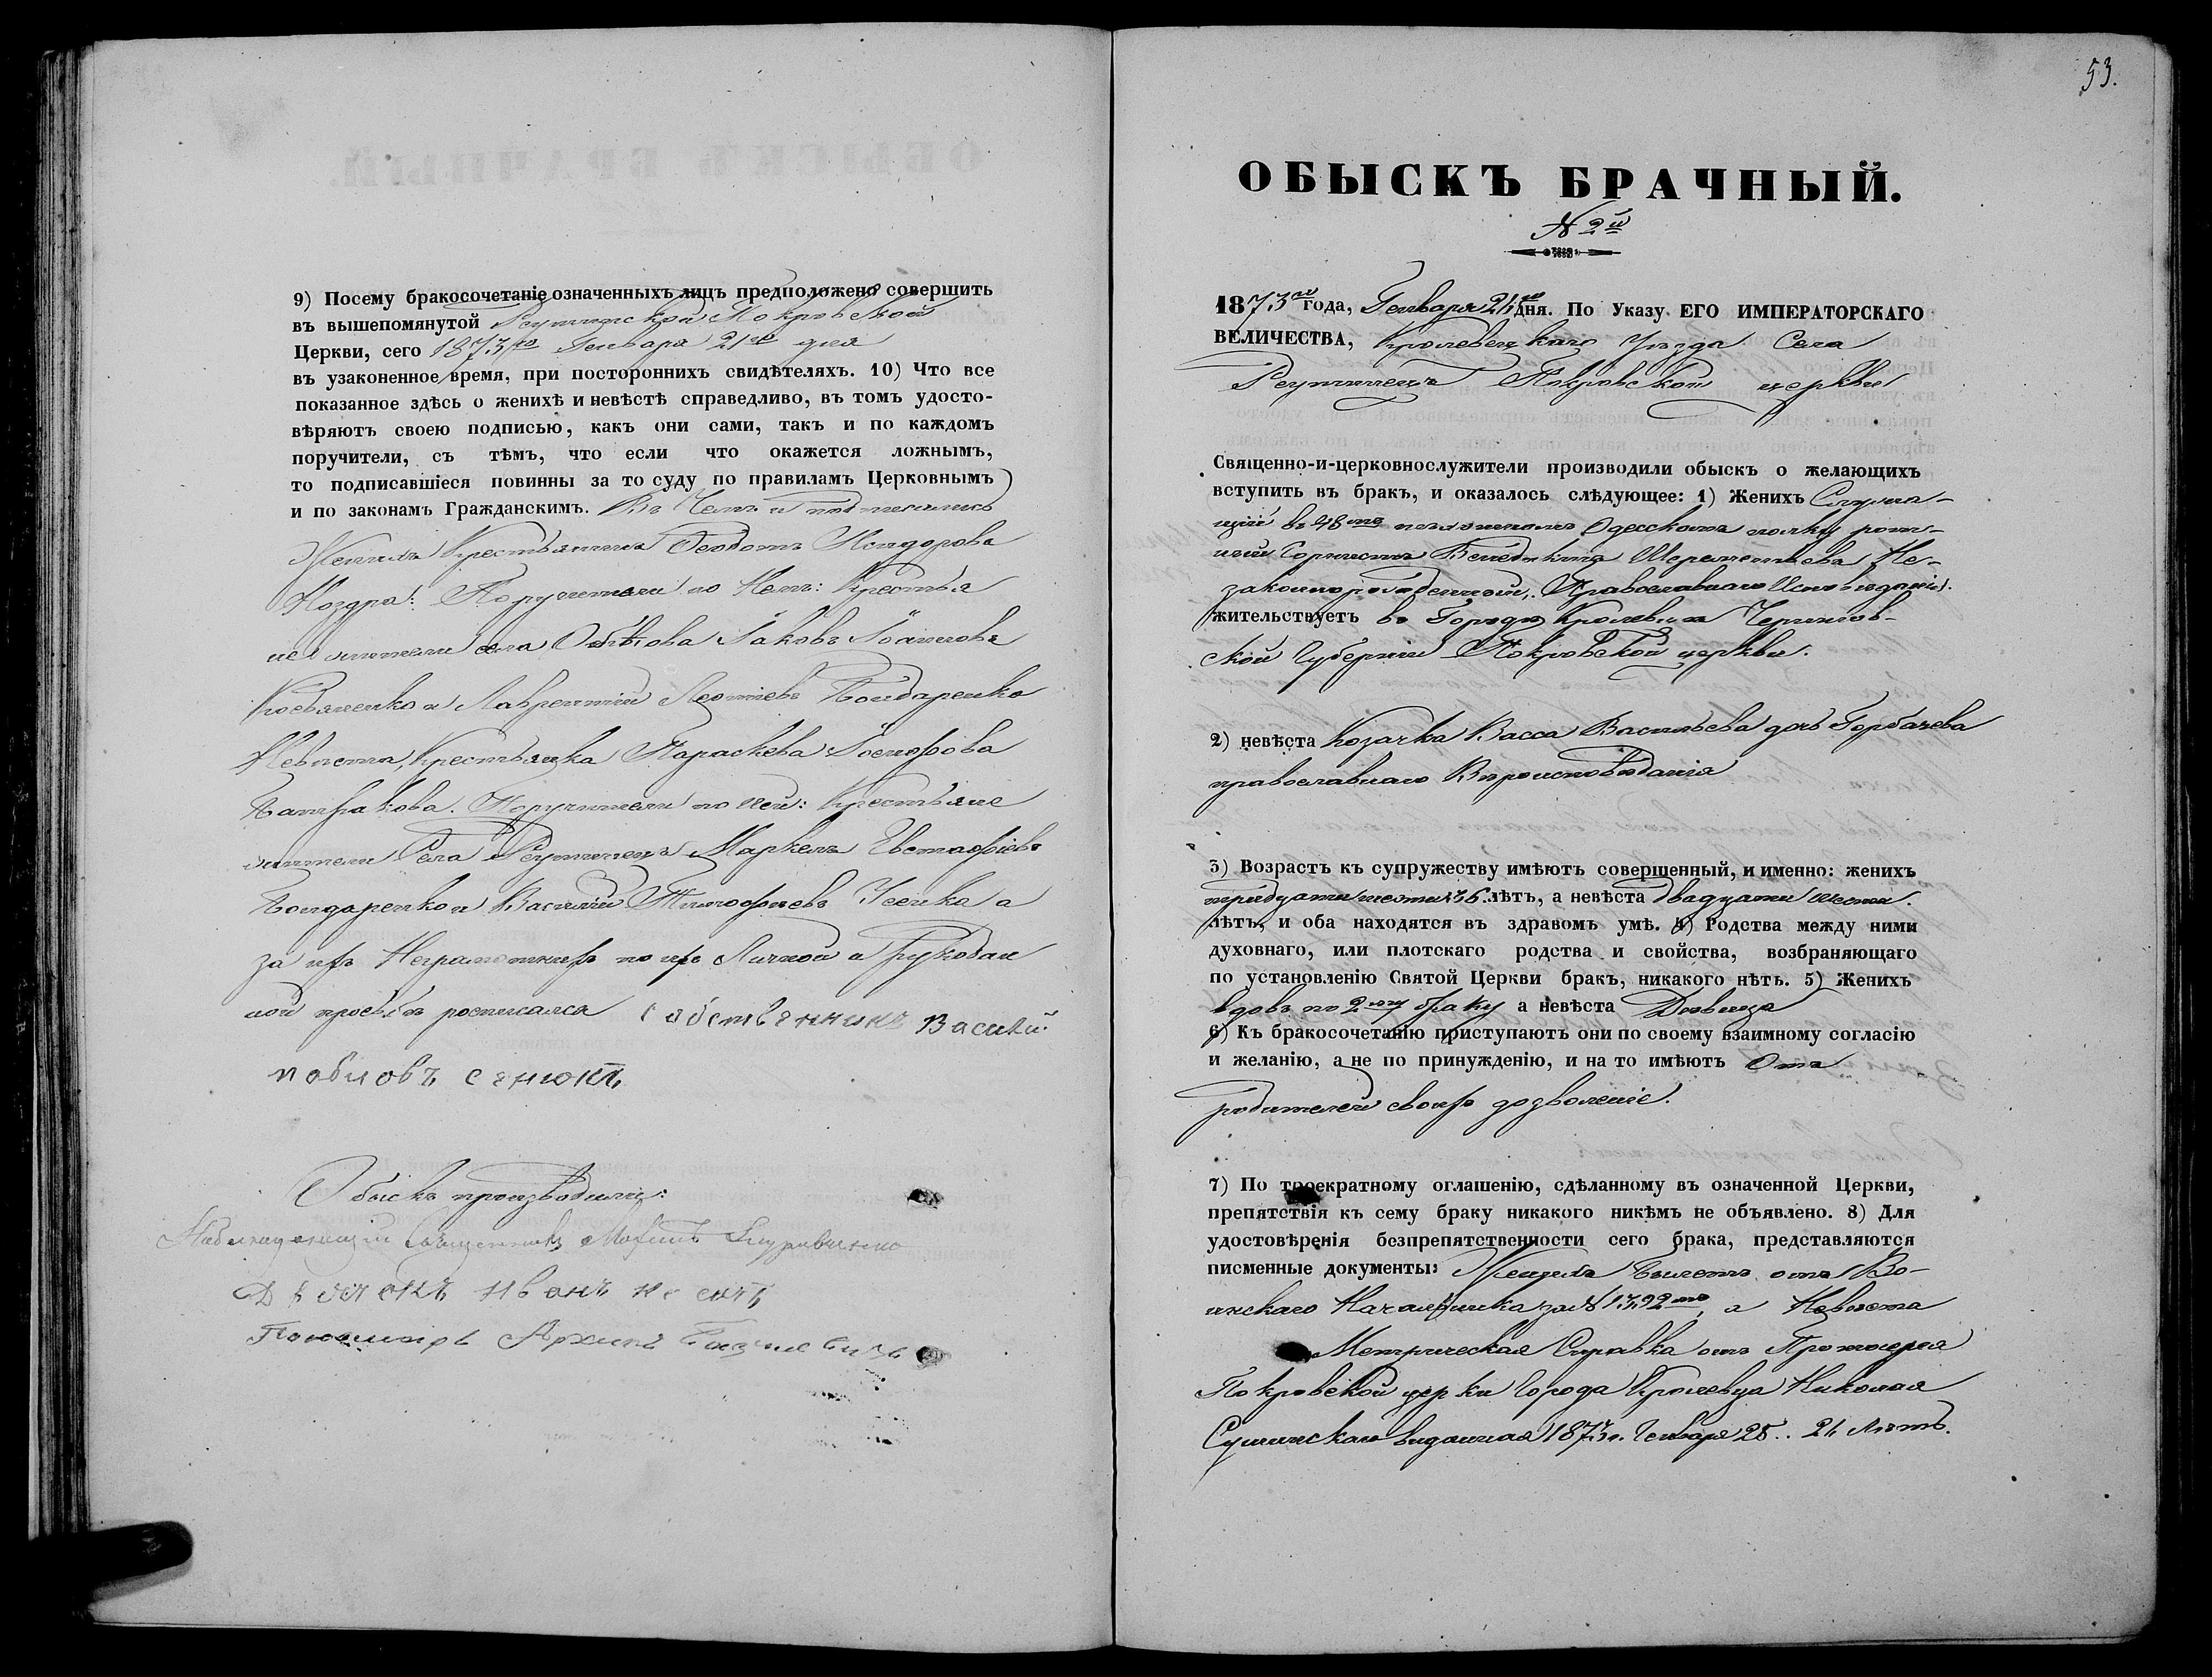 9) Посему бракосочетаніе означенныхъ лицъ предположено совершить
въ вышепомянутой Реутинской Покровской
Церкви, сего 1873го Генваря 21го дня
въ узаконенное время, при постороннихъ свидѣтеляхъ. 10) Что все
показанное здѣсь о женихѣ и невѣстѣ справедливо, въ томъ удосто-
вѣряютъ своею подписью, какъ они сами, такъ и по каждомъ
поручители, съ тѣмъ, что если что окажется ложнымъ,
то подписавшіеся повинны за то суду по правиламъ Церковнымъ
и по законамъ Гражданскимъ. Въ чемъ и подписались
Женихъ Крестьянинъ Феодотъ Исидоровъ
Ноздра: Поручители по Немъ: Крестья
не жители села Іаковъ Іоанновъ
и Лаврентій Леонтіевъ Бондаренко
Невѣста, Крестьянка Параскева Іосифова
Батракова. Поручители по ней: Крестьяне
жители Села Реутинецъ Маркелъ Евстафіевъ
Бондаренко и Василій Тимофіевъ Усенко а
за ихъ Неграмотныхъ по ихъ Личной и Рукодан
ной прозьбѣ росписался Собственникъ Василій
павловъ сенюкъ
Обыскъ производили:
Священникъ
Дьячокъ иванъ
Пономарь Архипъ
53.
ОБЫСКЪ БРАЧНЫЙ.
№ 2й
1873го года, Генваря 24го дня. По Указу ЕГО ИМПЕРАТОРСКАГО
ВЕЛИЧЕСТВА, Кролевецкаго Уѣзда Села
Реутинецъ Покровской церкви
Священно-и-церковнослужители производили обыскъ о желающихъ
вступить въ бракъ, и оказалось слѣдующее: 1) Женихъ Служа-
щій въ 48мъ пѣхотномъ Одесскомъ полку рот-
ный Горнистъ Венедиктъ Шереметьевъ Не-
законнорожденный, Православнаго Исповѣданія.
жительствуетъ въ Городѣ Кролевцѣ Чернигов-
ской Губерніи Покровской церкви.
2) невѣста Козачка Васса Васильева дочь Горбачева
православнаго Вѣроисповѣданія
3) Возрастъ къ супружеству имѣютъ совершенный, и именно: женихъ
тридцати шести 36. лѣтъ, а невѣста двадцати шести.
лѣтъ, и оба находятся въ здравомъ умѣ. 4) Родства между ними
духовнаго, или плотскаго родства и свойства, возбраняющаго
по установленію Святой Церкви бракъ, никакого нѣтъ. 5) Женихъ
вдовъ по 2му браку а невѣста Дѣвица
6) Къ бракосочетанію приступаютъ они по своему взаимному согласію
и желанію, а не по принужденію, и на то имѣютъ Отъ
родителей своихъ дозволеніе.
7) По троекратному оглашенію, сдѣланному въ означенной Церкви,
препятствія къ сему браку никакого никѣмъ не объявлено. 8) Для
удостовѣренія безпрепятственности сего брака, представляются
писменные документы: Женихъ Билетъ отъ Во-
инскаго Начальника за № 1392мъ, а Невѣста
Метрическая Справка отъ Протоіерея
Покровской церкви Города Кролевца Николая
Сушинскаго виданная 1873го. Генваря 25.. 26 лѣтъ.